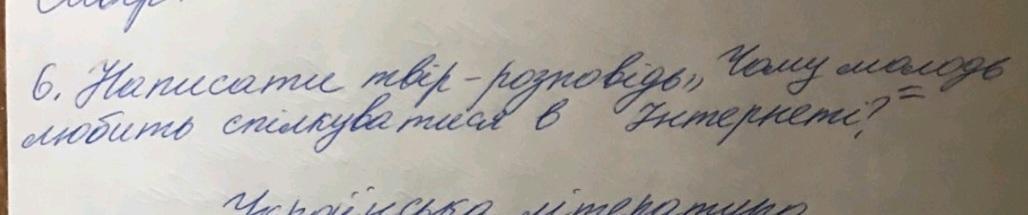 6. Написати твір-розповідь „Чому молодь
любить спілкуватися в Інтернеті?"
Українська література